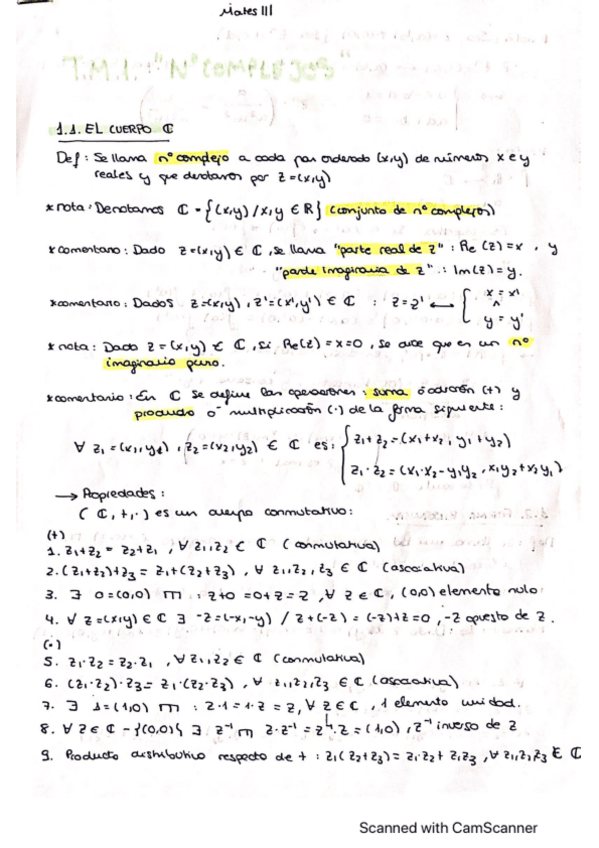 Mates III
T.M.1.: "Nº COMPLEJOS"
1.1. EL CUERPO ℂ
Def: Se llama nº complejo a cada par ordenado (x,y) de números x e y
reales y que denotamos por z=(x,y)
* nota: Denotamos ℂ = {(x,y) / x,y ∈ ℝ} (conjunto de nº complejos)
* comentario: Dado z=(x,y) ∈ ℂ, se llama "parte real de z": Re(z)=x, y
"parte imaginaria de z".: Im(z)=y.
* comentario: Dados z=(x,y), z'=(x',y') ∈ ℂ : z=z' ⟷ { x = x'
^
y = y'
* nota: Dado z=(x,y) ∈ ℂ, si Re(z)=x=0, se dice que es un nº
imaginario puro.
* comentario: En ℂ se define las operaciones: suma o adición (+) y
producto o multiplicación (·) de la forma siguiente:
∀ z₁=(x₁,y₁), z₂=(x₂,y₂) ∈ ℂ es: { z₁+z₂=(x₁+x₂, y₁+y₂)
z₁·z₂=(x₁·x₂-y₁y₂, x₁y₂+x₂y₁)
→ Propiedades:
(ℂ,+,·) es un cuerpo conmutativo:
(+)
1. z₁+z₂ = z₂+z₁, ∀ z₁,z₂ ∈ ℂ (conmutativa)
2. (z₁+z₂)+z₃ = z₁+(z₂+z₃), ∀ z₁,z₂,z₃ ∈ ℂ (asociativa)
3. ∃ 0=(0,0) m : z+0 =0+z= z, ∀ z ∈ ℂ, (0,0) elemento nulo.
4. ∀ z=(x,y) ∈ ℂ ∃ -z=(-x,-y) / z+(-z) = (-z)+z=0, -z opuesto de z.
(·)
5. z₁·z₂ = z₂·z₁, ∀ z₁,z₂ ∈ ℂ (conmutativa)
6. (z₁·z₂)·z₃= z₁·(z₂·z₃), ∀ z₁,z₂,z₃ ∈ ℂ (asociativa)
7. ∃ 1=(1,0) m : z·1=1·z = z, ∀ z ∈ ℂ, 1 elemento unidad.
8. ∀ z ∈ ℂ - {(0,0)} ∃ z⁻¹ m z·z⁻¹ = z⁻¹·z = (1,0), z⁻¹ inverso de z
9. Producto distributivo respecto de + : z₁(z₂+z₃)= z₁·z₂+ z₁z₃, ∀ z₁,z₂,z₃ ∈ ℂ
Scanned with CamScanner